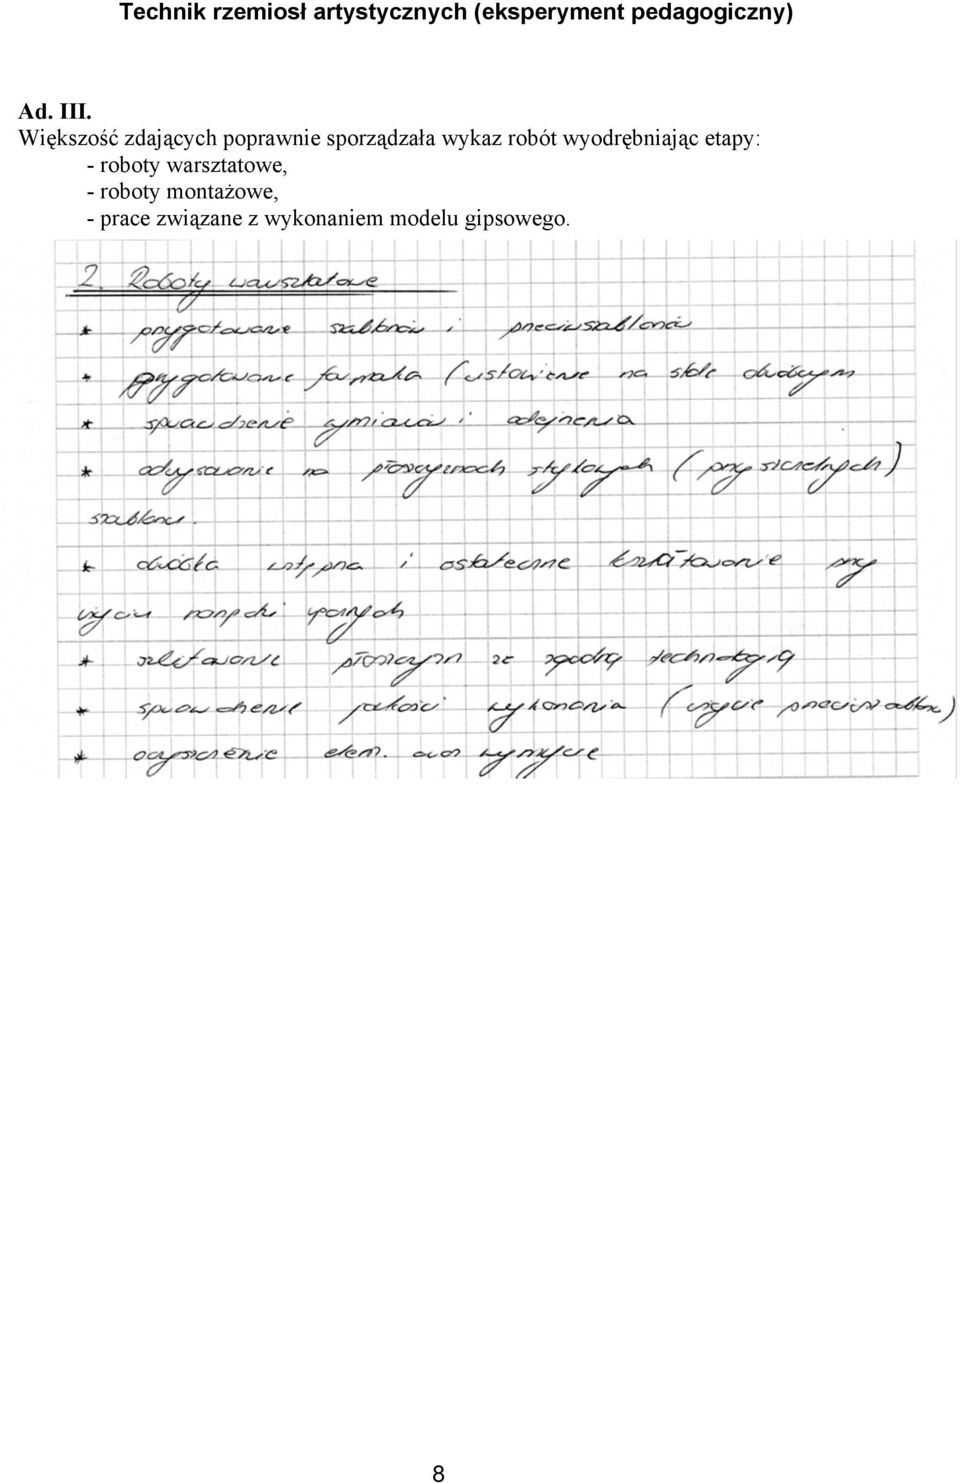 Technik rzemiosł artystycznych (eksperyment pedagogiczny)
Ad. III.
Większość zdających poprawnie sporządzała wykaz robót wyodrębniając etapy:
- roboty warsztatowe,
- roboty montażowe,
- prace związane z wykonaniem modelu gipsowego.
2. Roboty warsztatowe
* przygotowanie szablonów i przeciwszablonów
* przygotowanie formaka (ustawienie na stole obróbczym
* sprawdzenie wymiarów i
* odrysowanie na płaszczyznach stykowych (przyszczelnych)
szablonu.
* obróbka wstępna i ostateczne kształtowanie przy
użyciu narzędzi ręcznych
* szlifowanie płaszczyzn ze zgodną technologią
* sprawdzenie jakości wykonania (użycie przeciwszablonu)
* oczyszczenie elem. oraz wymycie
8